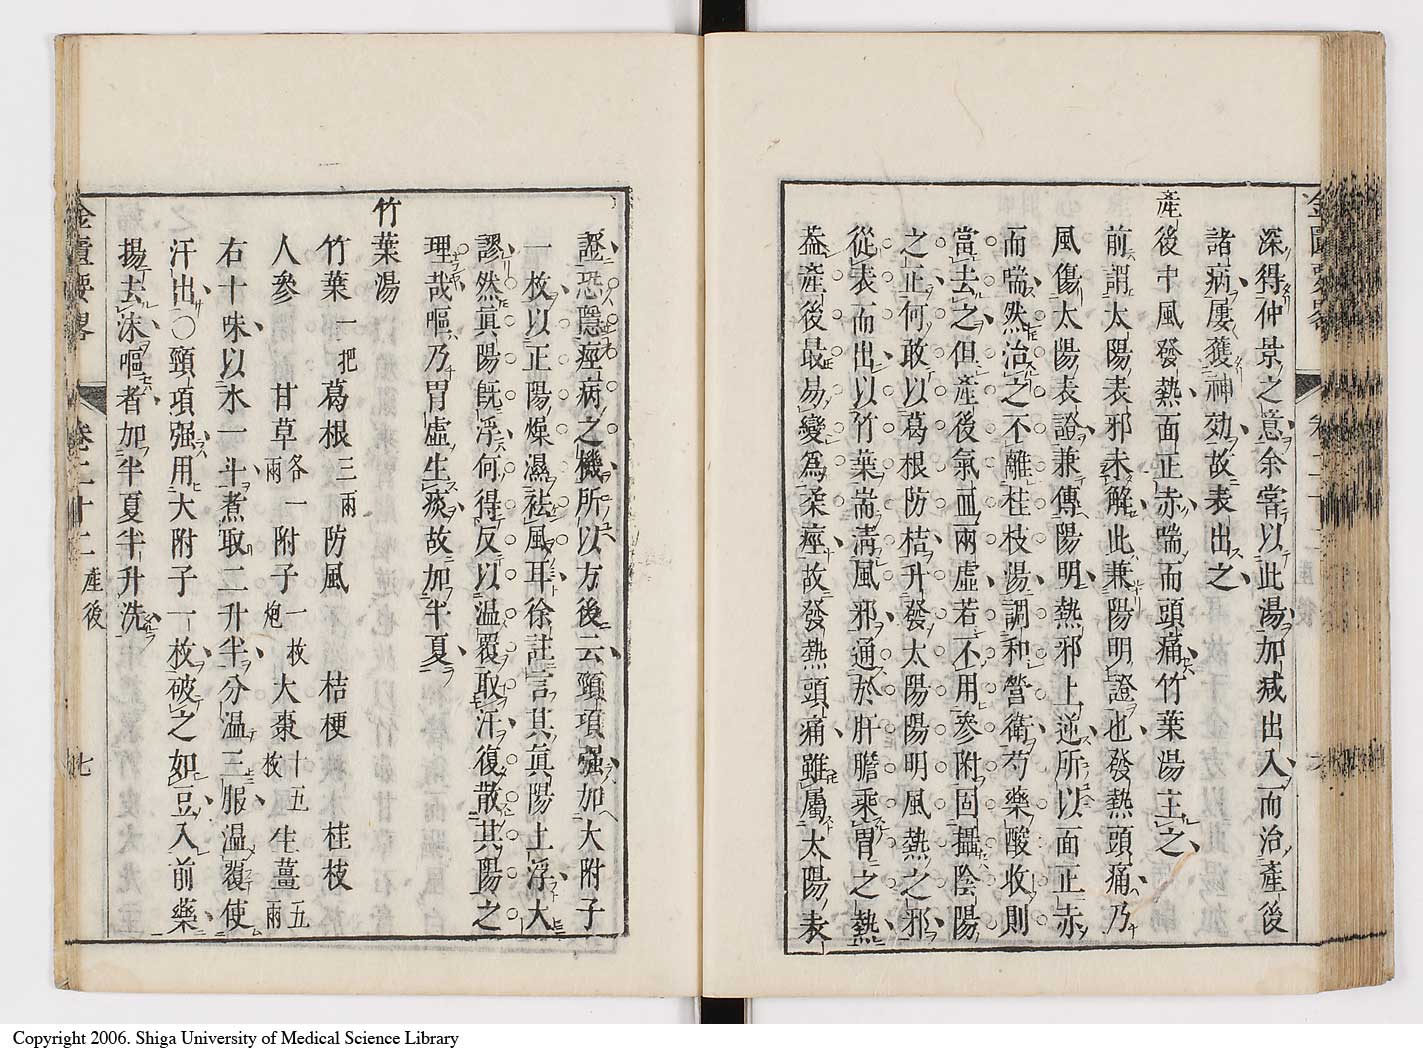 深得仲景之意余嘗以此湯加減出入而治產後
諸病屢獲神効故表出之
產後中風發熱面正赤喘而頭痛竹葉湯主之
前謂太陽表邪未解此兼陽明證也發熱頭痛乃
風傷太陽表證兼傳陽明熱邪上逆所以面正赤
而喘然治之不離桂枝湯調和營衛芍藥酸收則
當去之但產後氣血兩虛若不用參附固攝陰陽
之正何敢以葛根防桔升發太陽陽明風熱之邪
從表而出以竹葉耑淸風邪通於肝膽乘胃之熱
葢產後最易變爲柔痙故發熱頭痛雖屬太陽表
證恐隱痙病之機所以方後云頸項强加大附子
一枚以正陽燥濕祛風耳徐註言其眞陽上浮大
謬然眞陽旣浮何得反以温覆取汗復散其陽之
理哉嘔乃胃虛生痰故加半夏
竹葉湯
竹葉一把 葛根三兩 防風 桔梗 桂枝
人參 甘草各一兩 附子一枚炮 大棗十五枚 生薑五兩
右十味以水一斗煮取二升半分温三服温覆使
汗出○頸項强用大附子一枚破之如豆入前藥
揚去沫嘔者加半夏半升洗
金匱要畧 卷二十二 產後 七
Copyright 2006. Shiga University of Medical Science Library